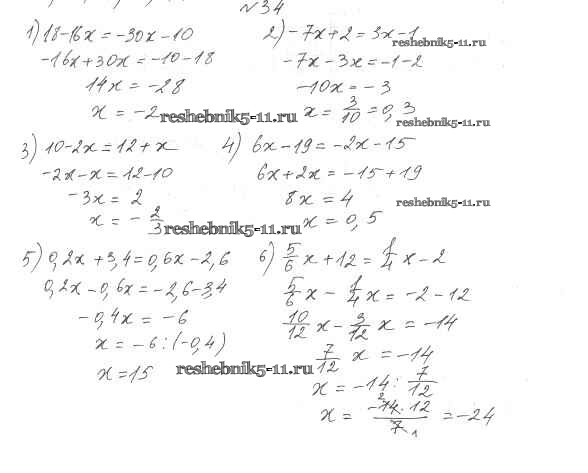 №34
1) 18-16x=-30x-10
-16x+30x=-10-18
14x=-28
x=-2
reshebnik5-11.ru
2) -7x+2=3x-1
reshebnik5-11.ru
-7x-3x=-1-2
-10x=-3
x=3/10=0,3
reshebnik5-11.ru
3) 10-2x=12+x
-2x-x=12-10
-3x=2
x=-2/3
reshebnik5-11.ru
4) 6x-19=-2x-15
6x+2x=-15+19
8x=4
reshebnik5-11.ru
x=0,5
5) 0,2x+3,4=0,6x-2,6
0,2x-0,6x=-2,6-3,4
-0,4x=-6
x=-6:(-0,4)
x=15
reshebnik5-11.ru
6) 5/6 x+12=1/4 x-2
5/6 x-1/4 x=-2-12
10/12 x-3/12 x=-14
7/12 x=-14
x=-14:7/12
x=-14·12/7=-24